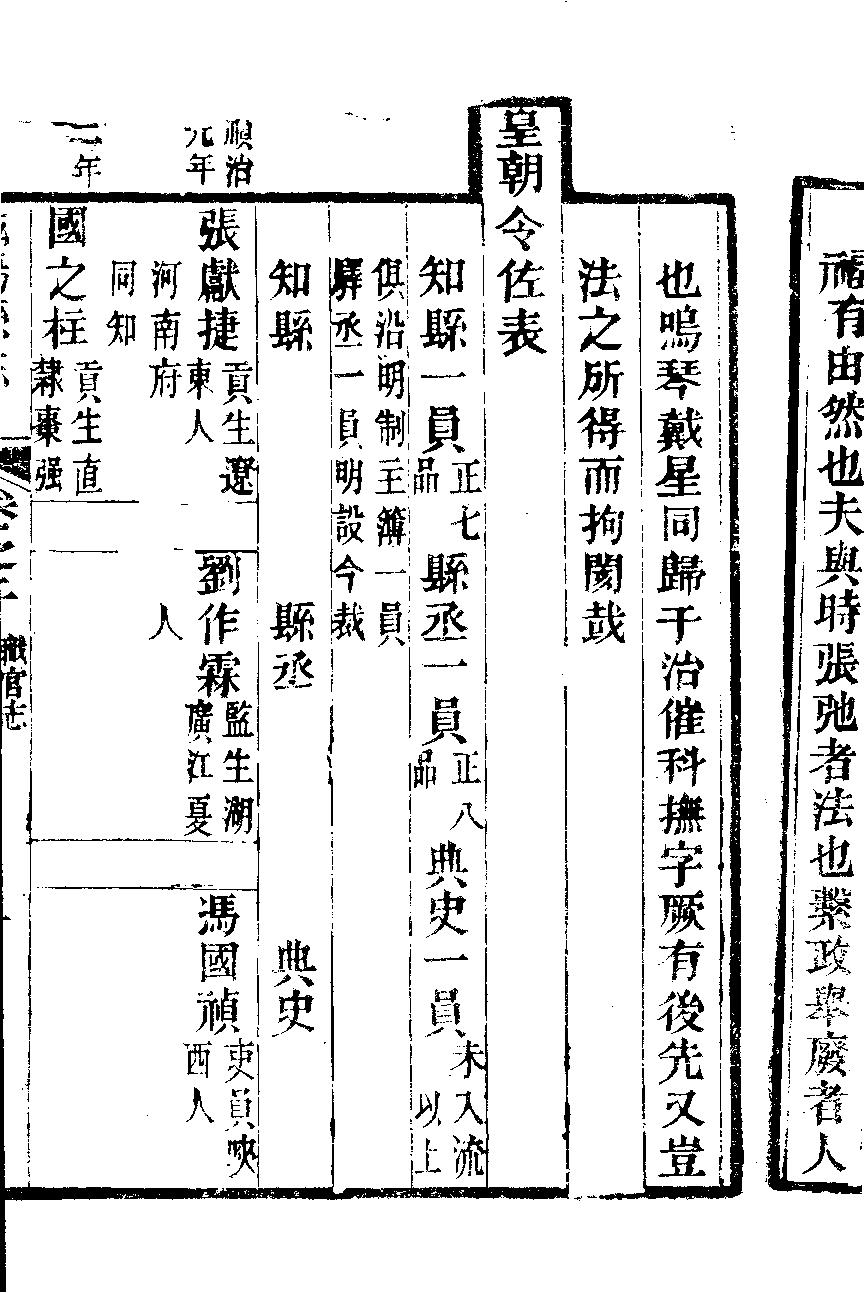 有由然也夫與時張弛者法也繫政舉廢者人
也鳴琴戴星同歸于治催科撫字厥有後先又豈
法之所得而拘閡哉
皇朝令佐表
知縣一員正七品 縣丞一員正八品 典史一員未入流以上
俱沿明制主簿一員
驛丞一員明設今裁
知縣 縣丞 典史
順治元年
張獻捷貢生遼東人 劉作霖監生湖廣江夏人 馮國禎吏員陜西人
河南府同知
二年
國之柱貢生直隸棗强
卷之
職官志